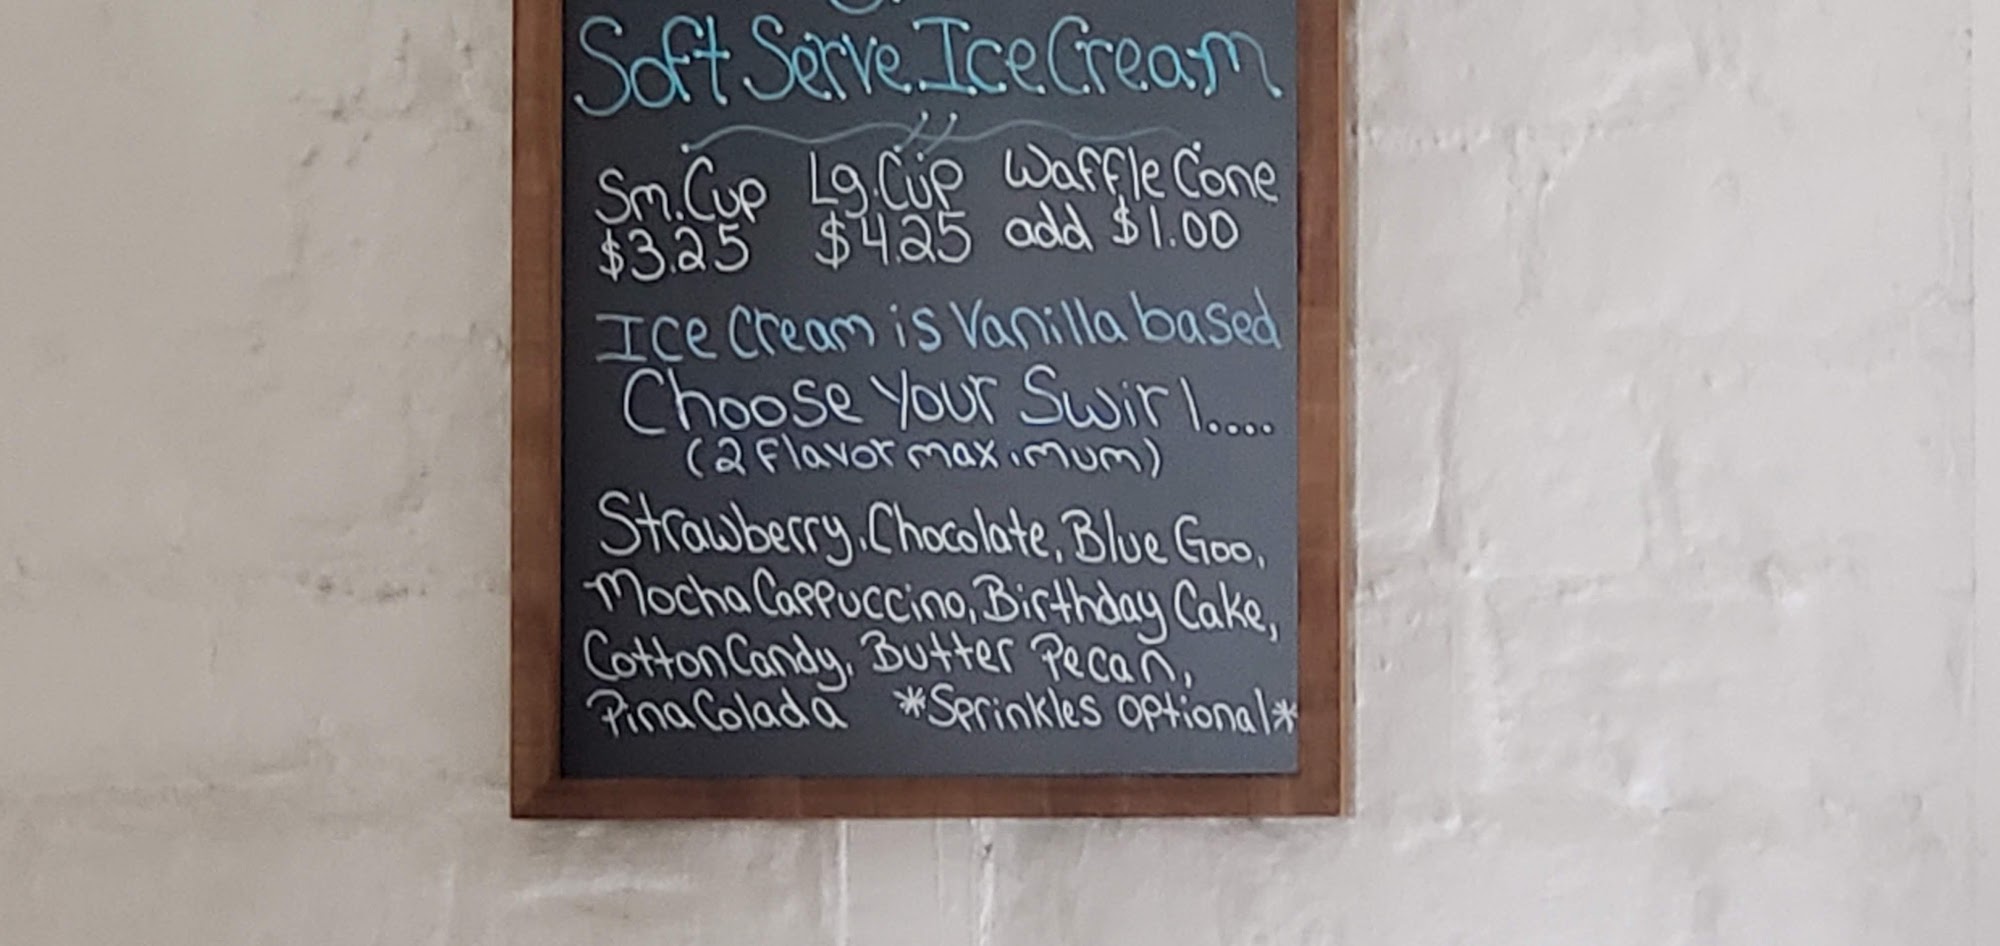 Soft Serve Ice Cream
Sm. Cup Lg. Cup Waffle Cone
$3.25 $4.25 add $1.00
Ice Cream is Vanilla based
Choose Your Swirl....
(2 Flavor maximum)
Strawberry, Chocolate, Blue Goo,
Mocha Cappuccino, Birthday Cake,
Cotton Candy, Butter Pecan,
Pina Colada *Sprinkles optional*